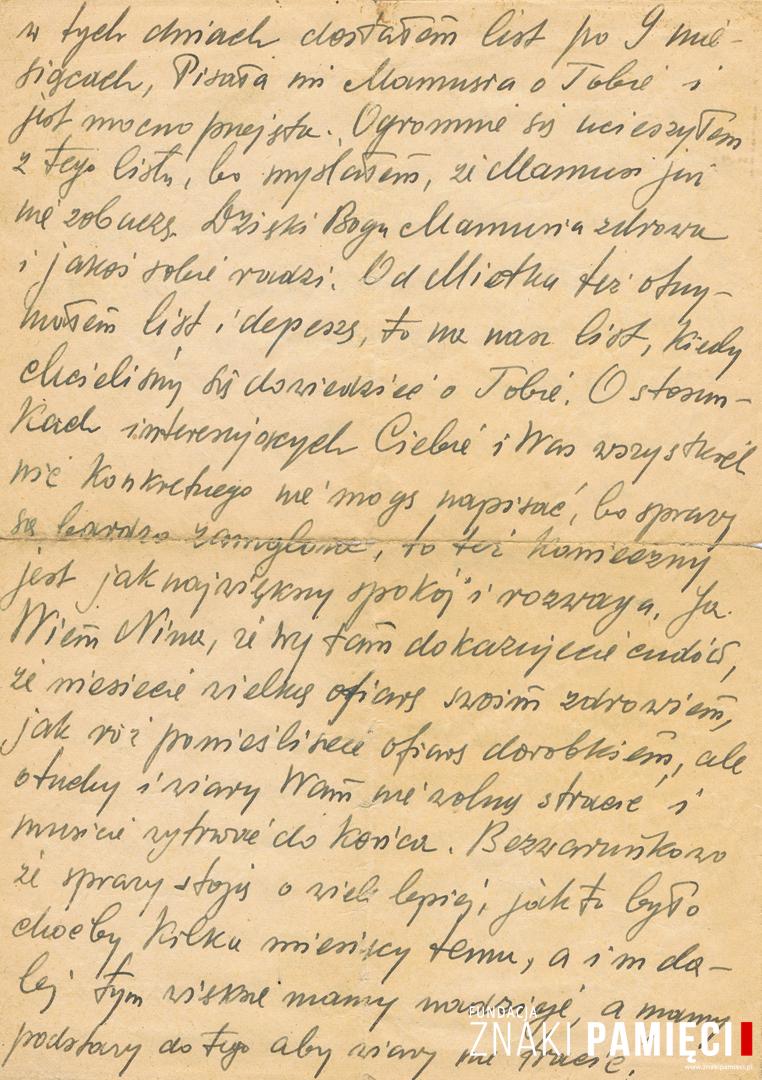 w tych dniach dostałem list po 9 mie-
siącach, Pisała mi Mamusia o Tobie i
jest mocno przejęta. Ogromnie się ucieszyłem
z tego listu, bo myślałem, że Mamusi już
nie zobaczę. Dzięki Bogu Mamusia zdrowa
i jakoś sobie radzi. Od Mietka też otrzy-
małem list i depeszę, to na nasz list, kiedy
chcieliśmy się dowiedzieć o Tobie. O stosun-
kach interesujących Ciebie i Was wszystkich
nic konkretnego nie mogę napisać, bo sprawy
są bardzo zamglone, to też konieczny
jest jak największy spokój i rozwaga. Ja
Wiem Nina, że wy tam dokazujecie cudów,
że niesiecie wielką ofiarę swoim zdrowiem,
jak też ponieśliście ofiarę dorobkiem, ale
otuchy i wiary Wam nie wolno stracić i
musicie wytrwać do końca. Bezwarunkowo
że sprawy stoją o wiele lepiej, jak to było
choćby kilka miesięcy temu, a im da-
lej tym większe mamy nadzieje, a mamy
podstawy do tego aby wiary nie tracić.
FUNDACJA
ZNAKI PAMIĘCI
www.znakipamieci.pl